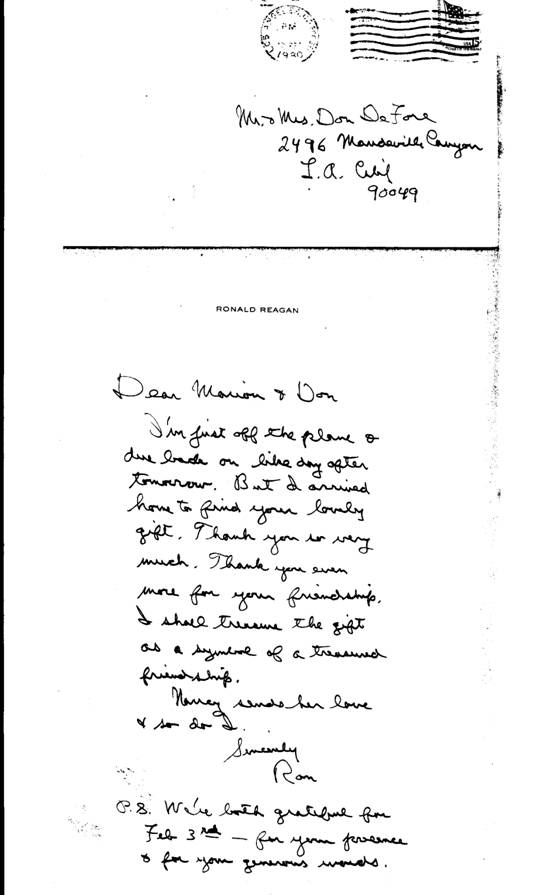 LOS ANGELES
PM
1980
USA 15c
Mr. & Mrs. Don DeFore
2496 Mandeville Canyon
L.A. Calif
90049
RONALD REAGAN
Dear Marion & Don
I'm just off the plane &
due back on like day after
tomorrow. But I arrived
home to find your lovely
gift. Thank you so very
much. Thank you even
more for your friendship.
I shall treasure the gift
as a symbol of a treasured
friendship.
Nancy sends her love
& so do I.
Sincerely
Ron
P.S. We're both grateful for
Feb 3rd — for your presence
& for your generous words.